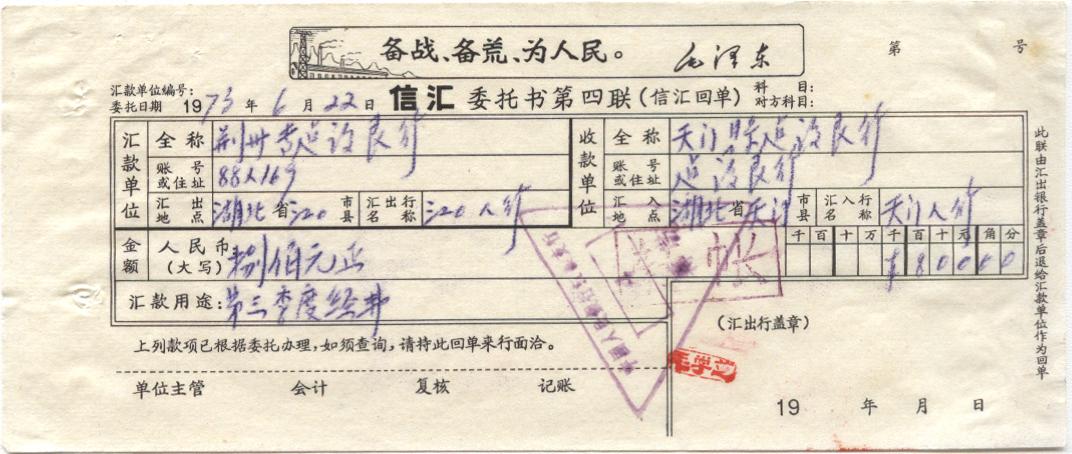 备战、备荒、为人民。 毛泽东
第 号
汇款单位编号：
委托日期 1973年6月22日 信汇 委托书第四联（信汇回单） 科目：
对方科目：
汇款单位 全称 荆州专 设 行
账号或住址 88人169
汇出地点 湖北省江20市县 汇出行名称 江20人行
收款单位 全称 天门县 设 行
账号或住址 设 行
汇入地点 湖北省天门市县 汇入行名称 天门人行
金额 人民币（大写） 捌佰元正 千百十万千百十元角分
¥80000
汇款用途：第三季度经费
（汇出行盖章）
上列款项已根据委托办理，如须查询，请持此回单来行面洽。
单位主管 会计 复核 记账
19 年 月 日
此联由汇出银行盖章后退给汇款单位作为回单
转帐